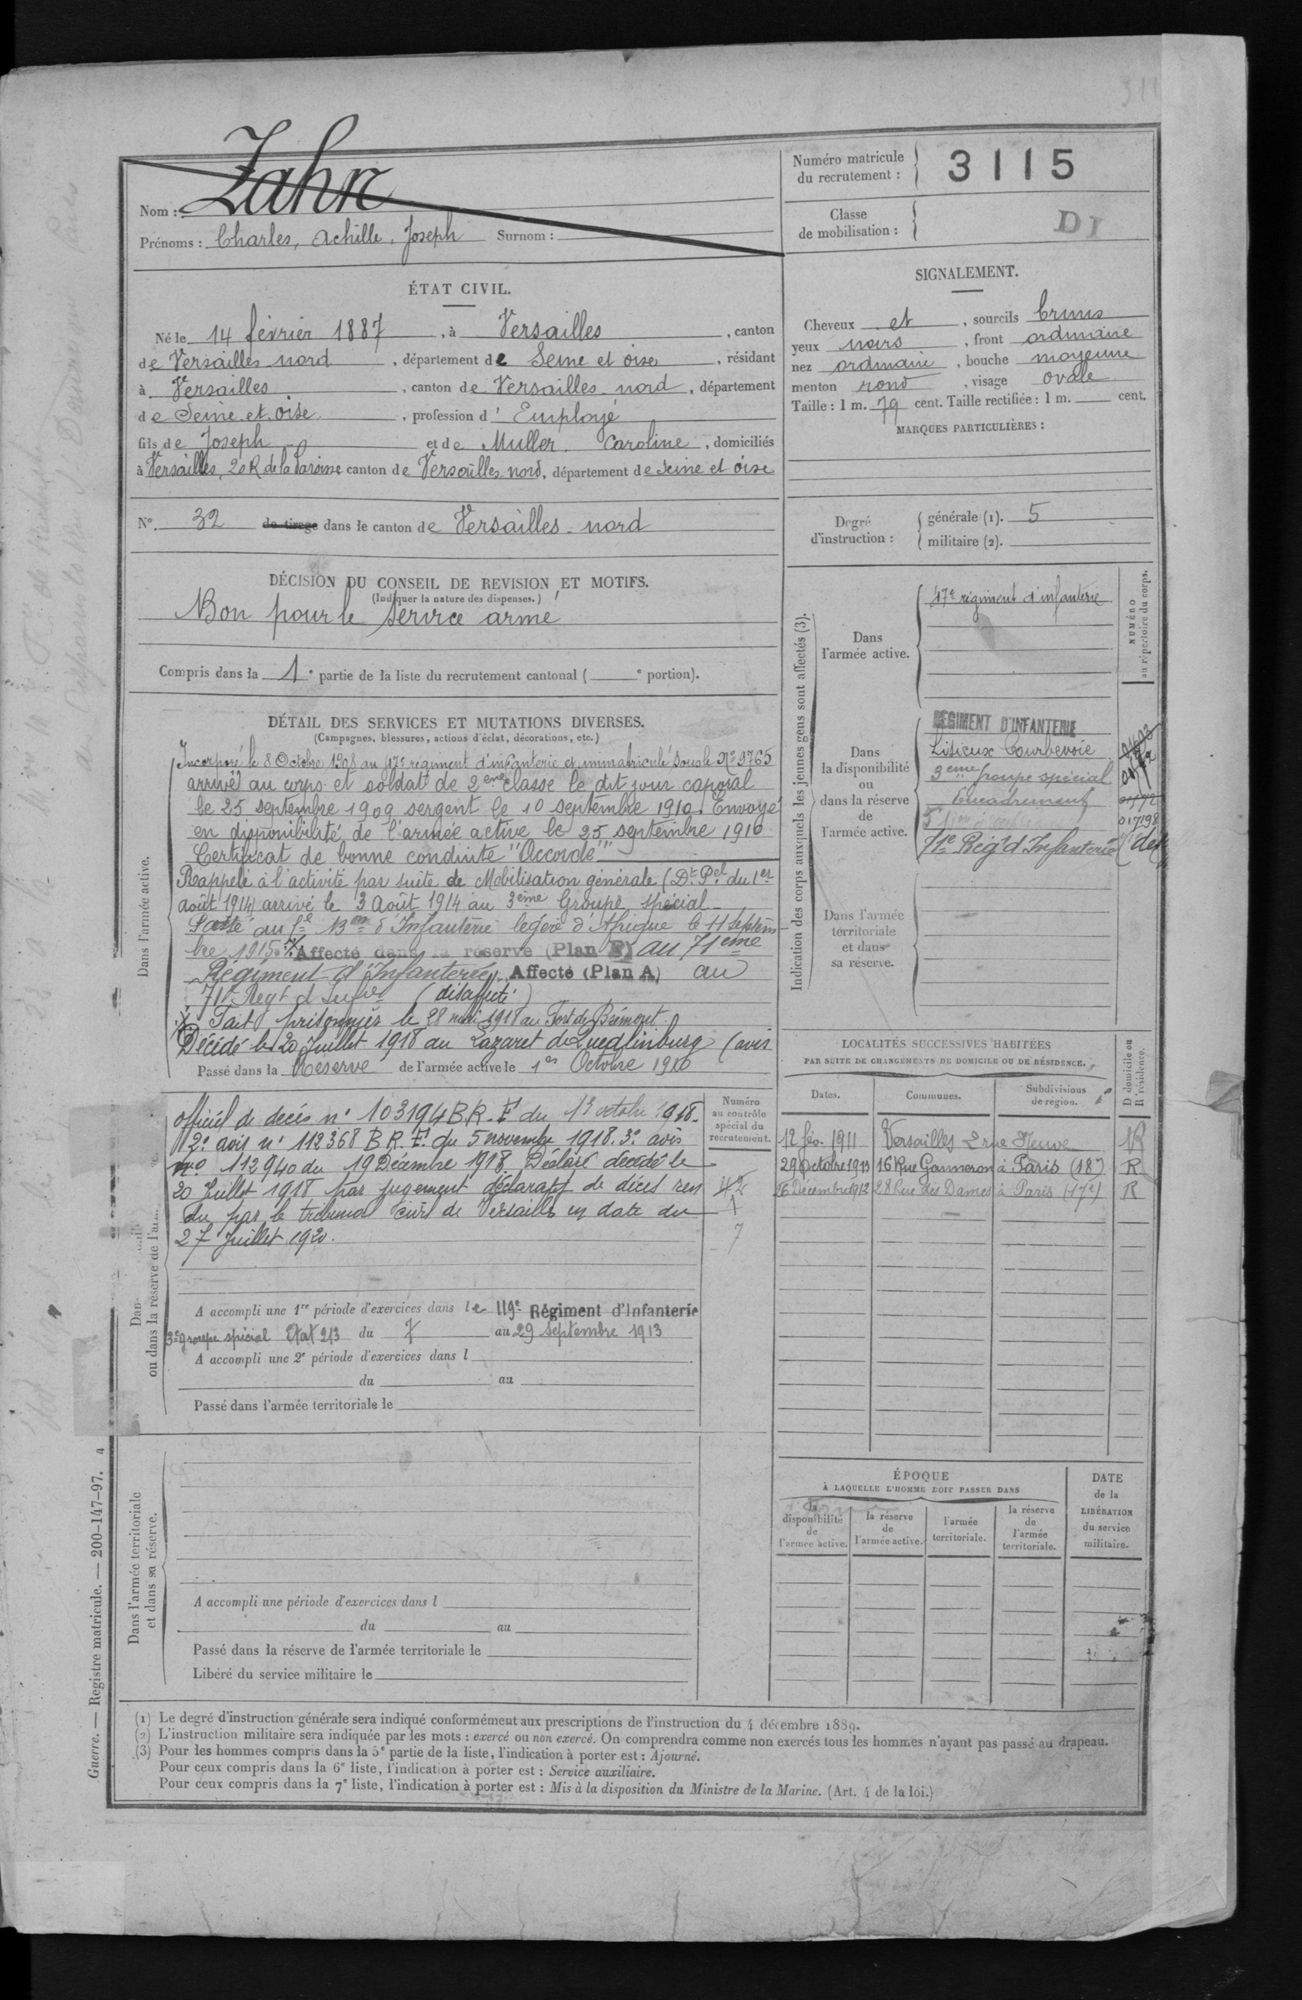 Nom : Zahn
Prénoms : Charles, Achille, Joseph Surnom :
Numéro matricule du recrutement : 3115
Classe de mobilisation :
DI
ÉTAT CIVIL.
Né le 14 février 1887, à Versailles, canton
de Versailles nord, département de Seine et oise, résidant
à Versailles, canton de Versailles nord, département
de Seine et oise, profession d'Employé
fils de Joseph et de Muller Caroline, domiciliés
à Versailles, 20 R de la Paroisse canton de Versailles nord, département de Seine et oise
N° 32 de tirage dans le canton de Versailles-nord
SIGNALEMENT.
Cheveux et, sourcils bruns
yeux noirs, front ordinaire
nez ordinaire, bouche moyenne
menton rond, visage ovale
Taille : 1 m. 79 cent. Taille rectifiée : 1 m. cent.
MARQUES PARTICULIÈRES :
Degré d'instruction : générale (1). 5
militaire (2).
DÉCISION DU CONSEIL DE REVISION ET MOTIFS.
(Indiquer la nature des dispenses.)
Bon pour le service armé
Compris dans la 1e partie de la liste du recrutement cantonal ( e portion).
DÉTAIL DES SERVICES ET MUTATIONS DIVERSES.
(Campagnes, blessures, actions d'éclat, décorations, etc.)
Dans l'armée active.
Incorporé le 8 Octobre 1908 au 47e régiment d'infanterie et immatriculé sous le N° 3765
arrivé au corps et soldat de 2ème classe le dit jour caporal
le 25 septembre 1909 sergent le 10 septembre 1910. Envoyé
en disponibilité de l'armée active le 25 septembre 1910
Certificat de bonne conduite "Accordé"
Rappelé à l'activité par suite de Mobilisation générale (Dt Pel du 1er
août 1914) arrivé le 3 août 1914 au 3ème Groupe spécial
Passé au Bon d'Infanterie légère d'Afrique le 11 septem
bre 1915 Affecté dans la réserve (Plan ) au 71ème
Régiment d'Infanterie, Affecté (Plan A) au
71e Regt d'Infie (désaffecté)
Fait prisonnier le 28 mai 1918 au Fort de Brimont
Décédé le 20 Juillet 1918 au Lazaret de Quedlinburg (avis
Passé dans la Réserve de l'armée active le 1er Octobre 1910
officiel de décès n° 103194 B.R.F. du 13 octobre 1918.
2e avis n° 112368 B.R.F. du 5 novembre 1918. 3e avis
no 112940 du 19 Décembre 1918. Déclaré décédé le
20 Juillet 1918 par jugement déclaratif de décès ren
du par le tribunal civil de Versailles en date du
27 Juillet 1920.
Numéro au contrôle spécial du recrutement.
42
1
7
ou dans la réserve de l'ar
A accompli une 1re période d'exercices dans le 119e Régiment d'Infanterie
3e groupe spécial Etat 213 du 7 au 29 septembre 1913
A accompli une 2e période d'exercices dans l
du au
Passé dans l'armée territoriale le
Dans l'armée territoriale et dans sa réserve.
A accompli une période d'exercices dans l
du au
Passé dans la réserve de l'armée territoriale le
Libéré du service militaire le
Indication des corps auxquels les jeunes gens sont affectés (3).
NUMÉRO au répertoire du corps.
Dans l'armée active.
47e régiment d'infanterie
Dans la disponibilité ou dans la réserve de l'armée active.
RÉGIMENT D'INFANTERIE
Lisieux Courbevoie
3ème groupe spécial
Encadrement
017198
71e Régt d'Infanterie
Dans l'armée territoriale et dans sa réserve.
LOCALITÉS SUCCESSIVES HABITÉES
PAR SUITE DE CHANGEMENTS DE DOMICILE OU DE RÉSIDENCE.
D domicile ou R résidence.
Dates. Communes. Subdivisions de région.
12 fév. 1911 Versailles 2 rue Neuve R
29 Octobre 1913 16 Rue Ganneron à Paris (18e) R
26 Décembre 1912 28 Rue des Dames à Paris (17e) R
ÉPOQUE
À LAQUELLE L'HOMME DOIT PASSER DANS
la disponibilité de l'armée active.
la réserve de l'armée active.
l'armée territoriale.
la réserve de l'armée territoriale.
DATE de la LIBÉRATION du service militaire.
(1) Le degré d'instruction générale sera indiqué conformément aux prescriptions de l'instruction du 4 décembre 1889.
(2) L'instruction militaire sera indiquée par les mots : exercé ou non exercé. On comprendra comme non exercés tous les hommes n'ayant pas passé au drapeau.
(3) Pour les hommes compris dans la 5e partie de la liste, l'indication à porter est : Ajourné.
Pour ceux compris dans la 6e liste, l'indication à porter est : Service auxiliaire.
Pour ceux compris dans la 7e liste, l'indication à porter est : Mis à la disposition du Ministre de la Marine. (Art. 4 de la loi.)
Guerre. — Registre matricule. — 200-147-97.